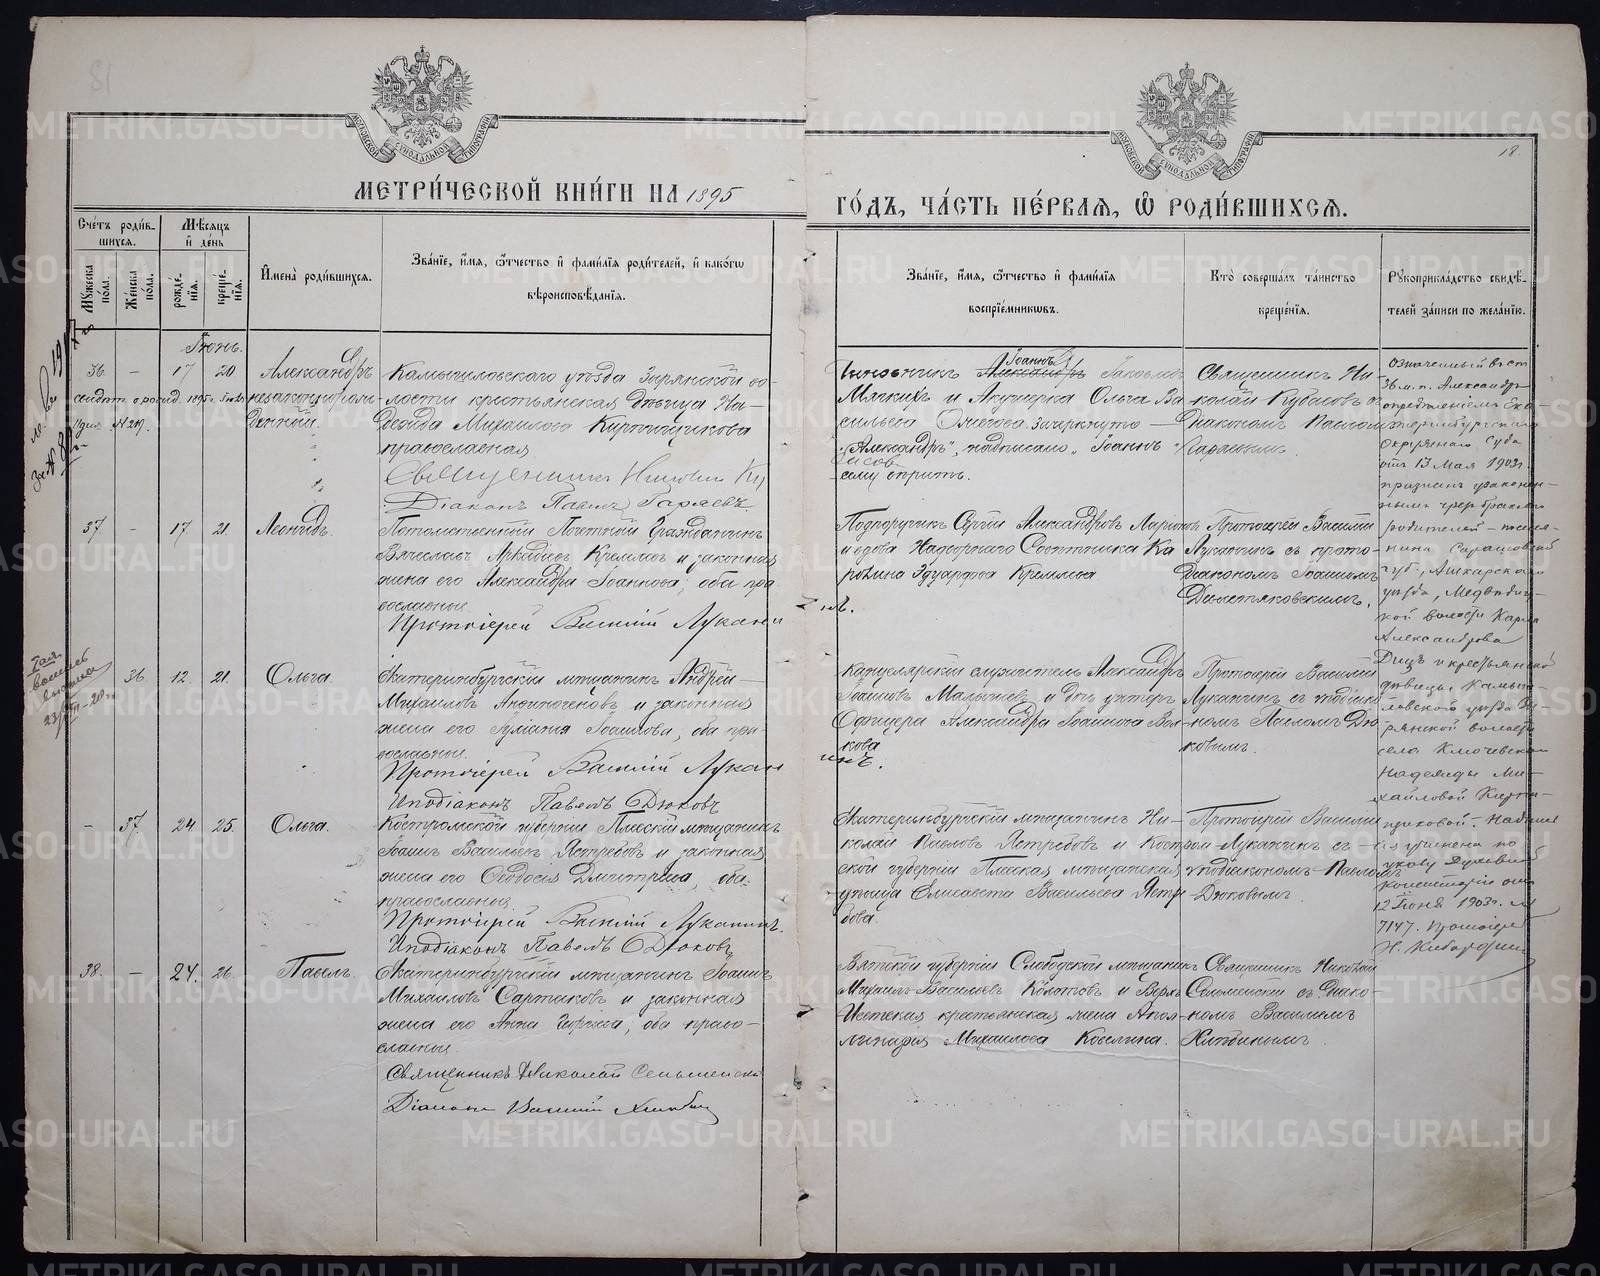 МЕТРИ́ЧЕСКОЙ КНИ́ГИ НА 1895
ГО́ДЪ, ЧА́СТЬ ПЕ́РВАЯ, Ѡ РОДИ́ВШИХСЯ.
18.
Сче́тъ роди́в-
шихся.
Мѣ́сяцъ
и҆ де́нь
Мꙋ́жеска
по́ла.
Же́нска
по́ла.
рожде́-
нїя.
креще́-
нїя.
И҆мена̀ роди́вшихся.
Зва́нїе, и҆́мя, ѻ҆́тчество и҆ фами́лїя роди́телей, и҆ како́гѡ
вѣроисповѣ́данїя.
Зва́нїе, и҆́мя, ѻ҆́тчество и҆ фами́лїя
воспрїе́мникѡвъ.
Кто̀ соверша́лъ та́инство
креще́нїя.
Рꙋкоприкла́дство свидѣ́-
телей за́писи по жела́нїю.
Іюнь.
36. - 17 20 Александръ
незаконорож-
денный
Камышловскаго уѣзда Зырянской во-
лости крестьянская дѣвица На-
дежда Михаилова Кирпищикова
православная
Священникъ Николай
Діаконъ Павелъ Гаряевъ.
Чиновникъ Александръ Іоаннъ Іаковлевъ
Мягкихъ и Акушерка Ольга Ва
сильева Зачеркнуто
„Александръ", надписано „Іоаннъ"
Священникъ Ни-
колай съ
Діакономъ Павломъ
Означенный въ ст
36 м. п. Александръ
опредѣленіемъ Ека-
теринбургскаго
Окружнаго Суда
отъ 13 Мая 1903 г.
признанъ узаконен-
нымъ чрезъ бракъ
родителей - посел-
янина Саратовской
губ.,
уѣзда, Медвѣдиц-
кой волости Карла
Александрова
и крестьянской
дѣвицы, Камыш-
ловскаго уѣзда Зы-
рянской волости
села Ключевскаго
Надежды Ми-
хайловой Кирпи-
щиковой. Надпись
учинена по
указу Духовной
Консисторіи отъ
12 Іюня 1903 г. №
7147. Протоіерей
37. - 17 21. Леонидъ.
Потомственный Почетный Гражданинъ
Вячеславъ Аркадіевъ Кремлевъ и законная
жена его Александра Іоаннова; оба пра
вославные.
Протоіерей Василій Луканинъ.
Подпоручикъ Сергій Александровъ
и вдова Надворнаго Совѣтника Ка
ролина Эдуардова Кремлева
Протоіерей Василій
Луканинъ съ прото-
діакономъ Іоанномъ
Девятьяковскимъ.
- 36 12 21. Ольга.
Екатеринбургскій мѣщанинъ Андрей
Михаиловъ Анѳиногеновъ и законная
жена его Іуліанія Іоаннова, оба пра-
вославные.
Протоіерей Василій Луканинъ.
Иподіаконъ Павелъ Дюковъ
Канцелярскій служитель Александръ
Іоанновъ Малышевъ и дочь унтеръ
Офицера Александра Іоаннова Вол-
кова
Протоіерей Василій
Луканинъ съ иподіако-
номъ Павломъ Дю
ковымъ.
- 37 24 25. Ольга.
Костромской губерніи Плесскій мѣщанинъ
Іоаннъ Васильевъ Ястребовъ и законная
жена его Ѳеодосія Дмитріева, оба
православные.
Протоіерей Василій Луканинъ.
Иподіаконъ Павелъ Дюковъ
Екатеринбургскій мѣщанинъ Ни-
колай Павловъ Ястребовъ и Костром-
ской губерніи Плесская мѣщанская
дѣвица Елисавета Васильева Ястре
бова.
Протоіерей Василій
Луканинъ съ
иподіакономъ Павломъ
Дюковымъ.
38. - 24. 26. Павелъ.
Екатеринбургскій мѣщанинъ Іоаннъ
Михаиловъ Сартаковъ и законная
жена его Анна Георгіева, оба право-
славные.
Священникъ Николай Сельменскій
Діаконъ Василій Хлыбинъ
Вятской губерніи Слободской мѣщанинъ
Михаилъ Васильевъ Колотовъ и Верхъ
Исетская крестьянская жена Апол-
линарія Михаилова Ковелина.
Священникъ Николай
Сельменскій съ Діако-
номъ Василіемъ
Хлыбинымъ
METRIKI.GASO-URAL.RU